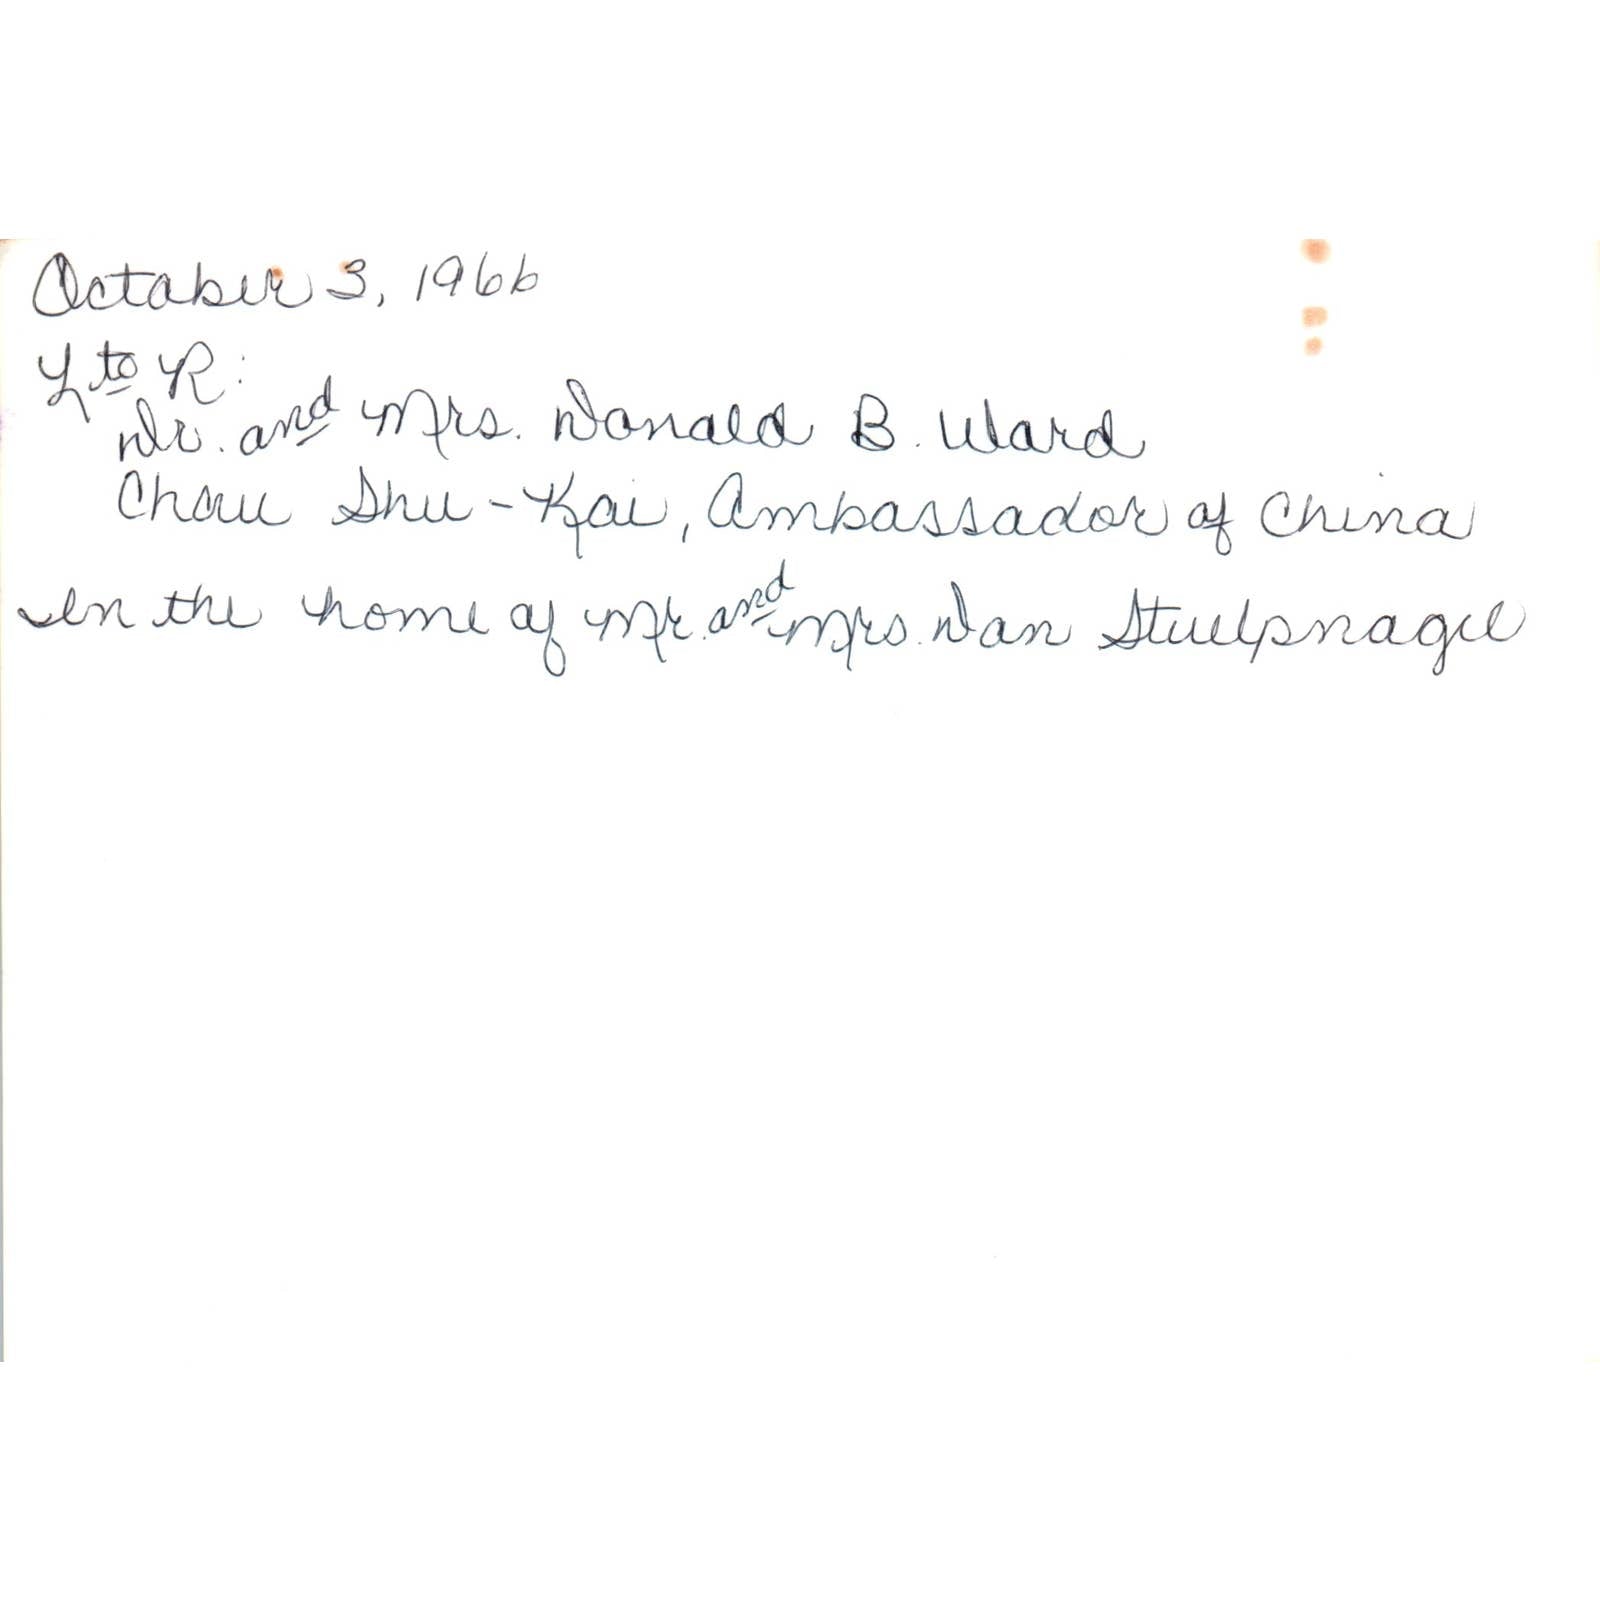 October 3, 1966
L to R:
Dr. and Mrs. Donald B. Ward
Chow Shu-Kai, Ambassador of China
In the home of Mr. and Mrs. Dan Stuelpnagel